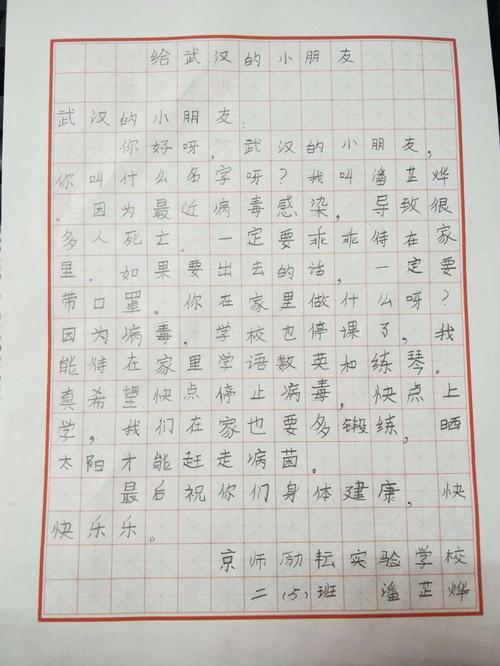 给武汉的小朋友
武汉的小朋友：
你好呀，武汉的小朋友，
你叫什么名字呀？我叫潘芷烨
。因为最近病毒感染，导致很
多人死亡。一定要乖乖待在家
里。如果要出去的话，一定要
带口罩。你在家里做什么呀？
因为病毒，学校也停课了，我
能待在家里学语数英和练琴。
真希望快点停止病毒，快点上
学，我们在家也要多锻练，晒
太阳才能赶走病菌。
最后祝你们身体建康，快
快乐乐。
京师励耘实验学校
二（5）班 潘芷烨